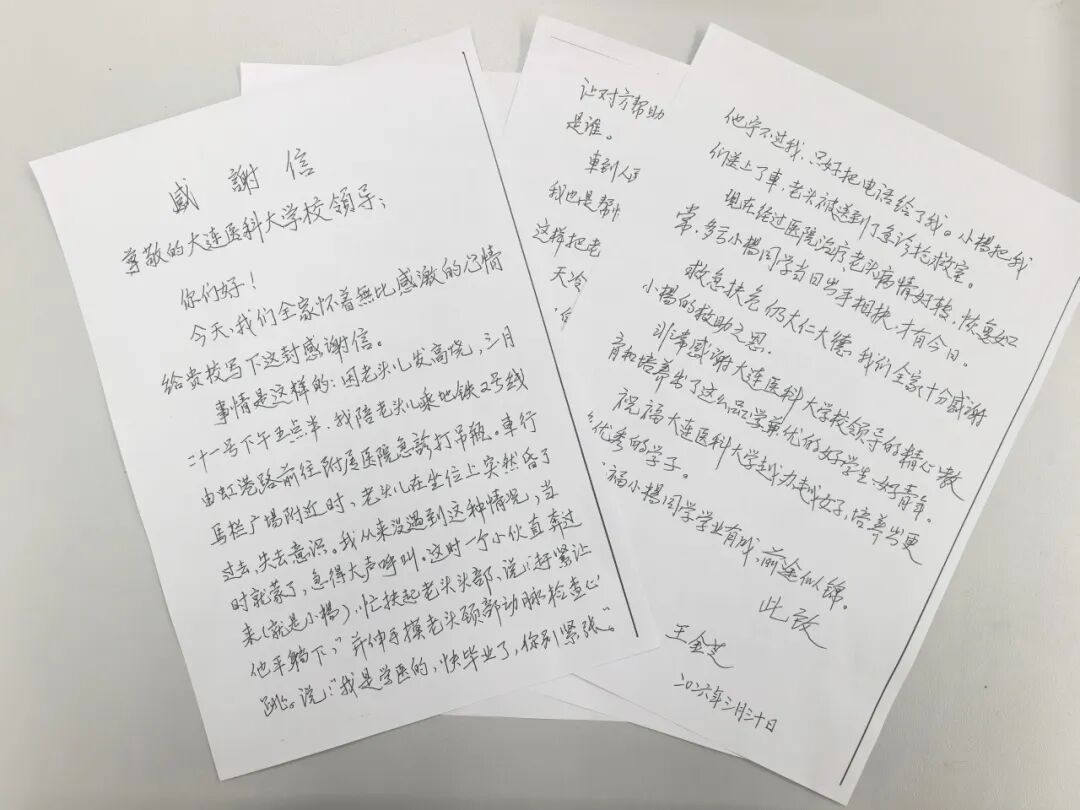 感謝信
尊敬的大连医科大学校领导：
你们好！
今天、我们全家怀着無比感激的心情
给贵校写下这封感谢信。
事情是这样的：因老头儿发高烧，三月
二十一号下午五点半、我陪老头儿乘地铁2号线
由虹港路前往附属医院急診打吊瓶。車行
马栏广场附近时、老头儿在坐位上突然昏了
过去，失去意识。我从来没遇到这种情况，当
时就蒙了，急得大声呼叫。这时一个小伙直奔过
来（就是小楊），忙扶起老头头部、说：“赶紧让
他平躺下，”并伸手摸老头颈部动脉检查心
跳。说：“我是学医的，快毕业了，你别紧张。”
让对方帮助
是谁。
車到人
我也是帮
这样把老
天冷
他宁不过我，只好把电话给了我。小楊把我
们送上了車，老头被送到了急诊抢救室。
现在经过医院治疗、老头病情好转，恢复如
常，多亏小楊同学当日出手相扶，才有今日。
救急扶危仍大仁大德，我们全家十分感谢
小楊的救助之恩.
非常感谢大连医科大学校领导的精心教
育和培养出了这么品学兼优的好学生、好青年。
祝福大连医科大学越办越好，培养出更
优秀的学子。
福小楊同学学业有成，前途似锦。
此致
王金芝
二〇二六年三月三十日